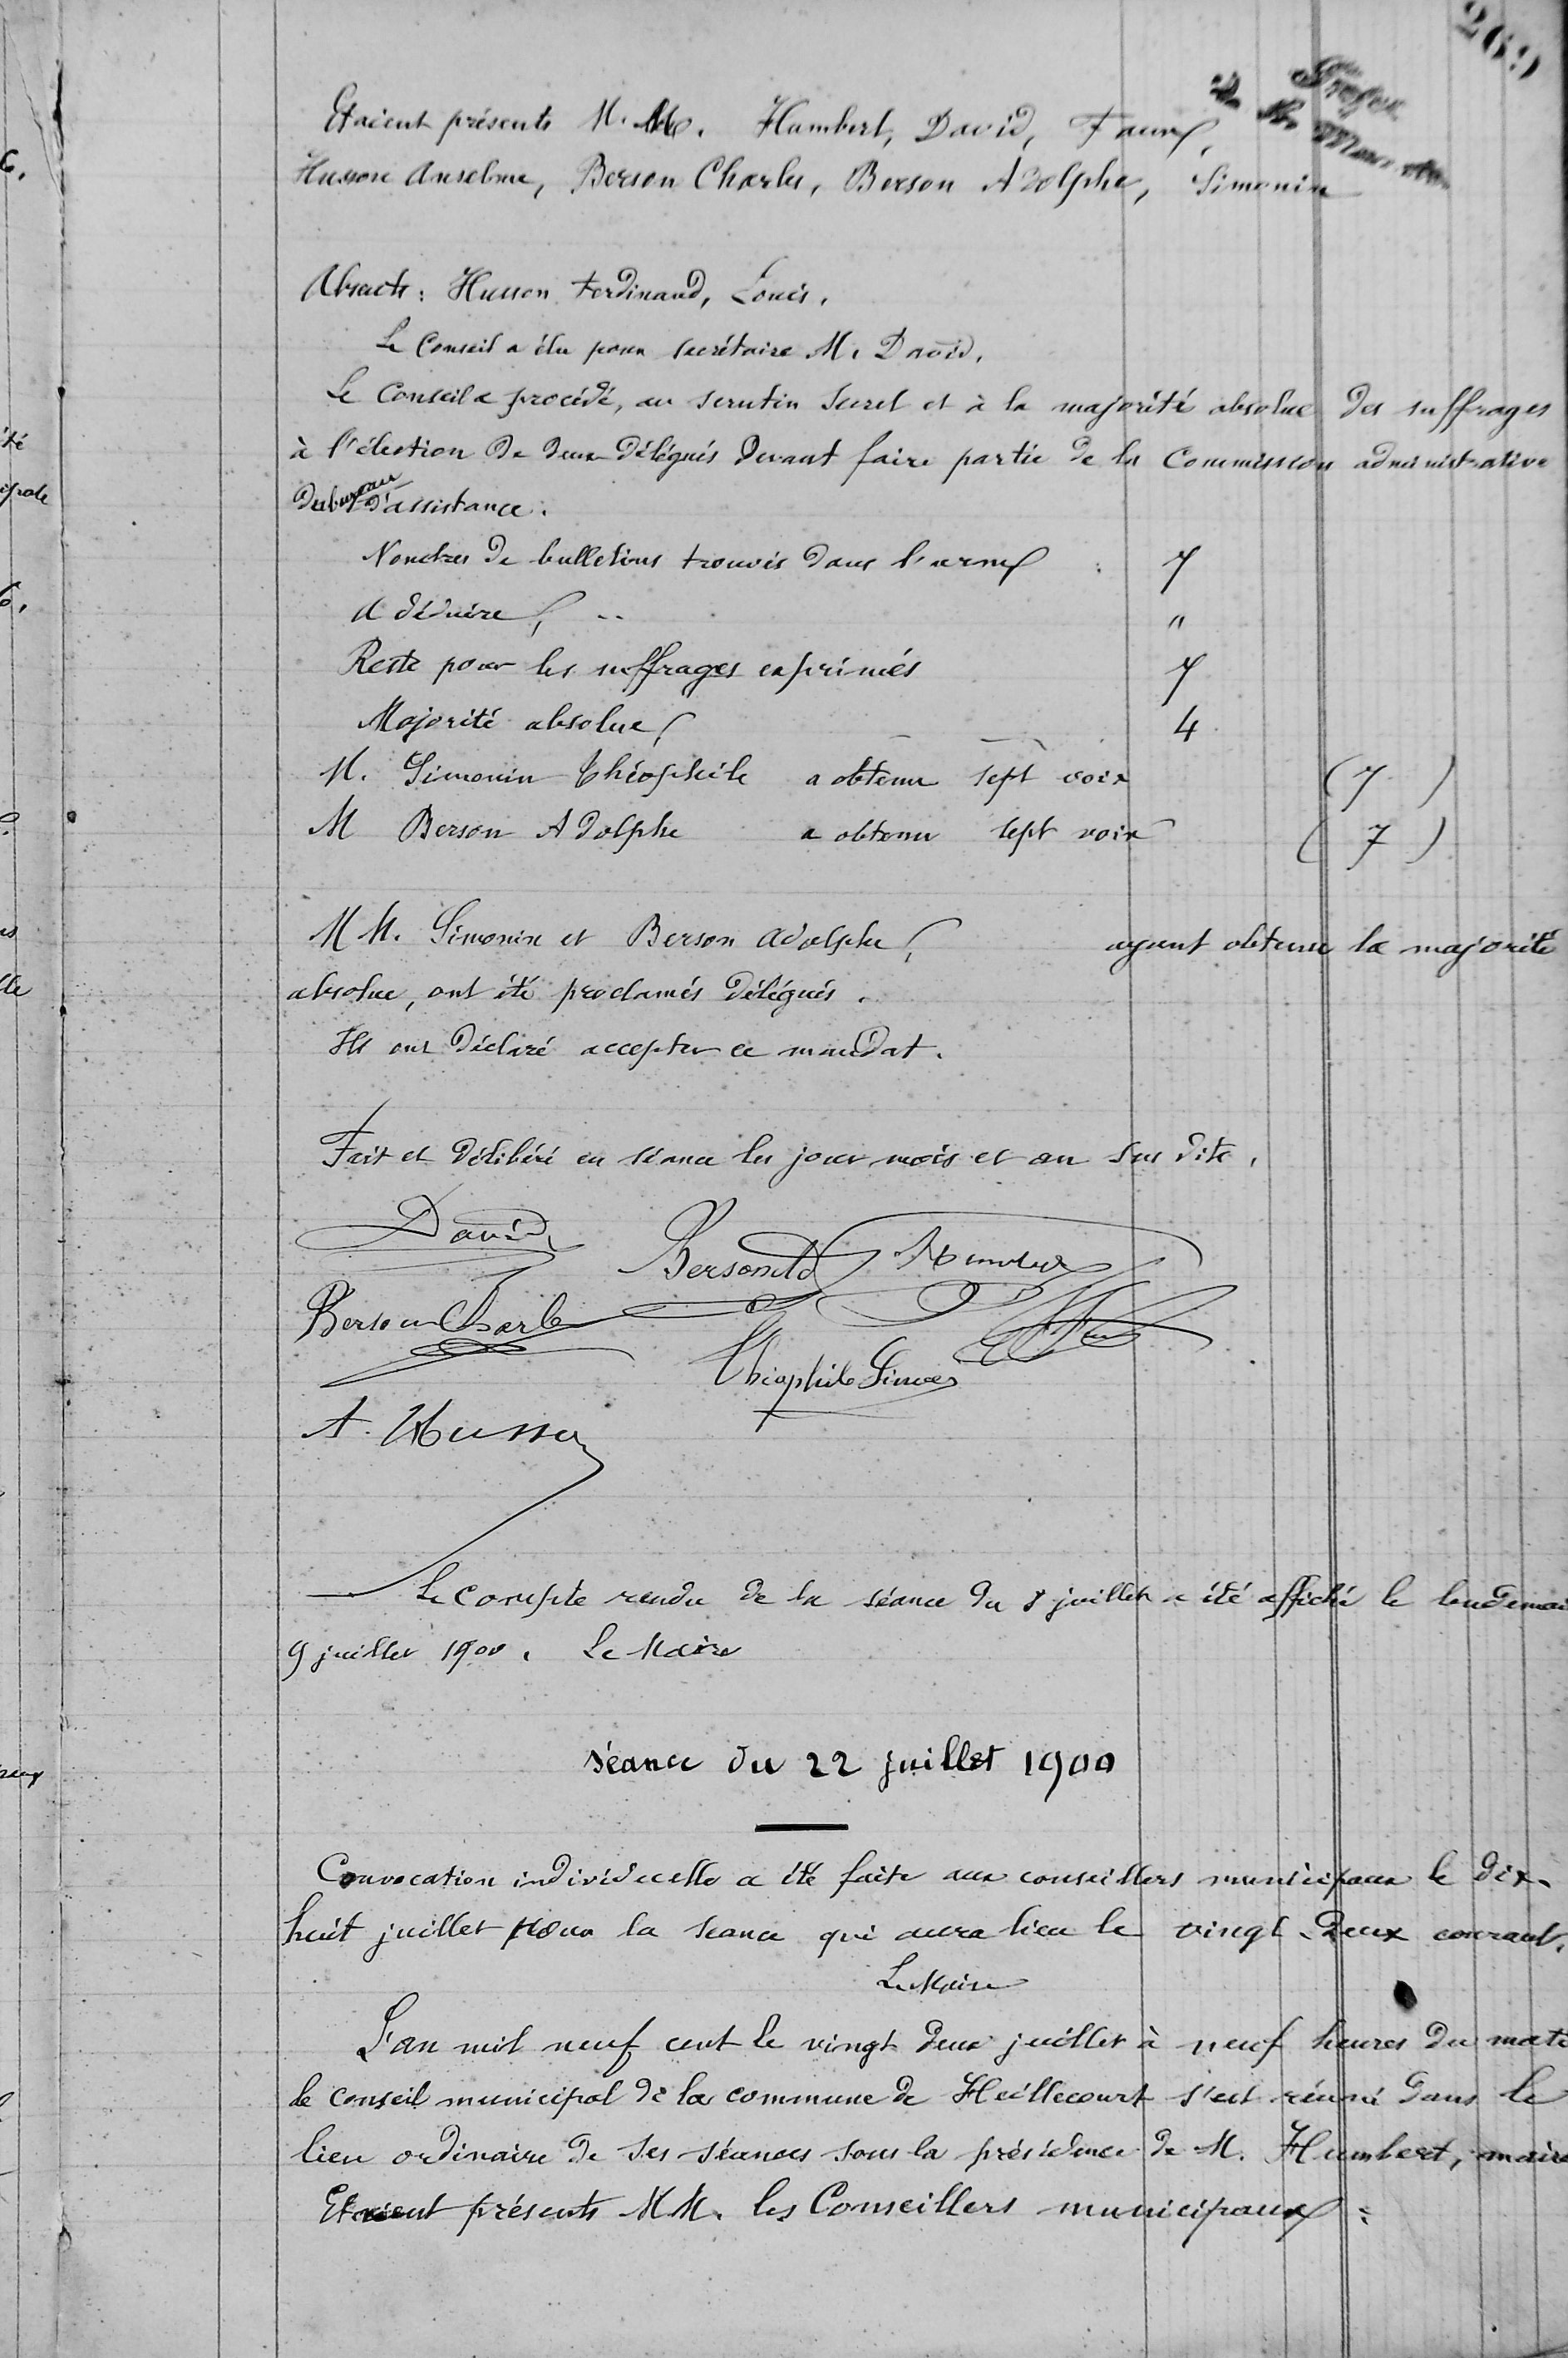 269
Etaient présents M. M. Humbert, David, Faure,
Husson Anselme, Berson Charles, Berson Adolphe, Simonin
Absents : Husson Ferdinand, Louis.
Le Conseil a élu pour secrétaire M. David.
Le Conseil a procédé, au scrutin secret et à la majorité absolue des suffrages
à l'élection de deux délégués devant faire partie de la Commission administrative
du bureau d'assistance.
Nombres de bulletins trouvés dans l'urne : 7
A déduire, "
Reste pour les suffrages exprimés 7
Majorité absolue, 4
M. Simonin Théophile a obtenu sept voix (7)
M Berson Adolphe a obtenu sept voix (7)
M M. Simonin et Berson Adolphe, ayant obtenu la majorité
absolue, ont été proclamés délégués.
Ils ont déclaré accepter ce mandat.
Fait et délibéré en séance les jour mois et an sus dits.
David
Berson Ad
Humbert
Berson Charles
Théophile Simonin
A. Husson
Le compte rendu de la séance du 8 juillet a été affiché le lendemai
9 juillet 1900. Le Maire
Séance du 22 juillet 1900
Convocation individuelle a été faite aux conseillers municipaux le dix-
huit juillet pour la séance qui aura lieu le vingt-deux courant.
Le Maire
L'an mil neuf cent le vingt deux juillet à neuf heures du mati
le conseil municipal de la commune de Heillecourt s'est réuni dans le
lieu ordinaire de ses séances sous la présidence de M. Humbert, maire
Etaient présents M M. les Conseillers municipaux :